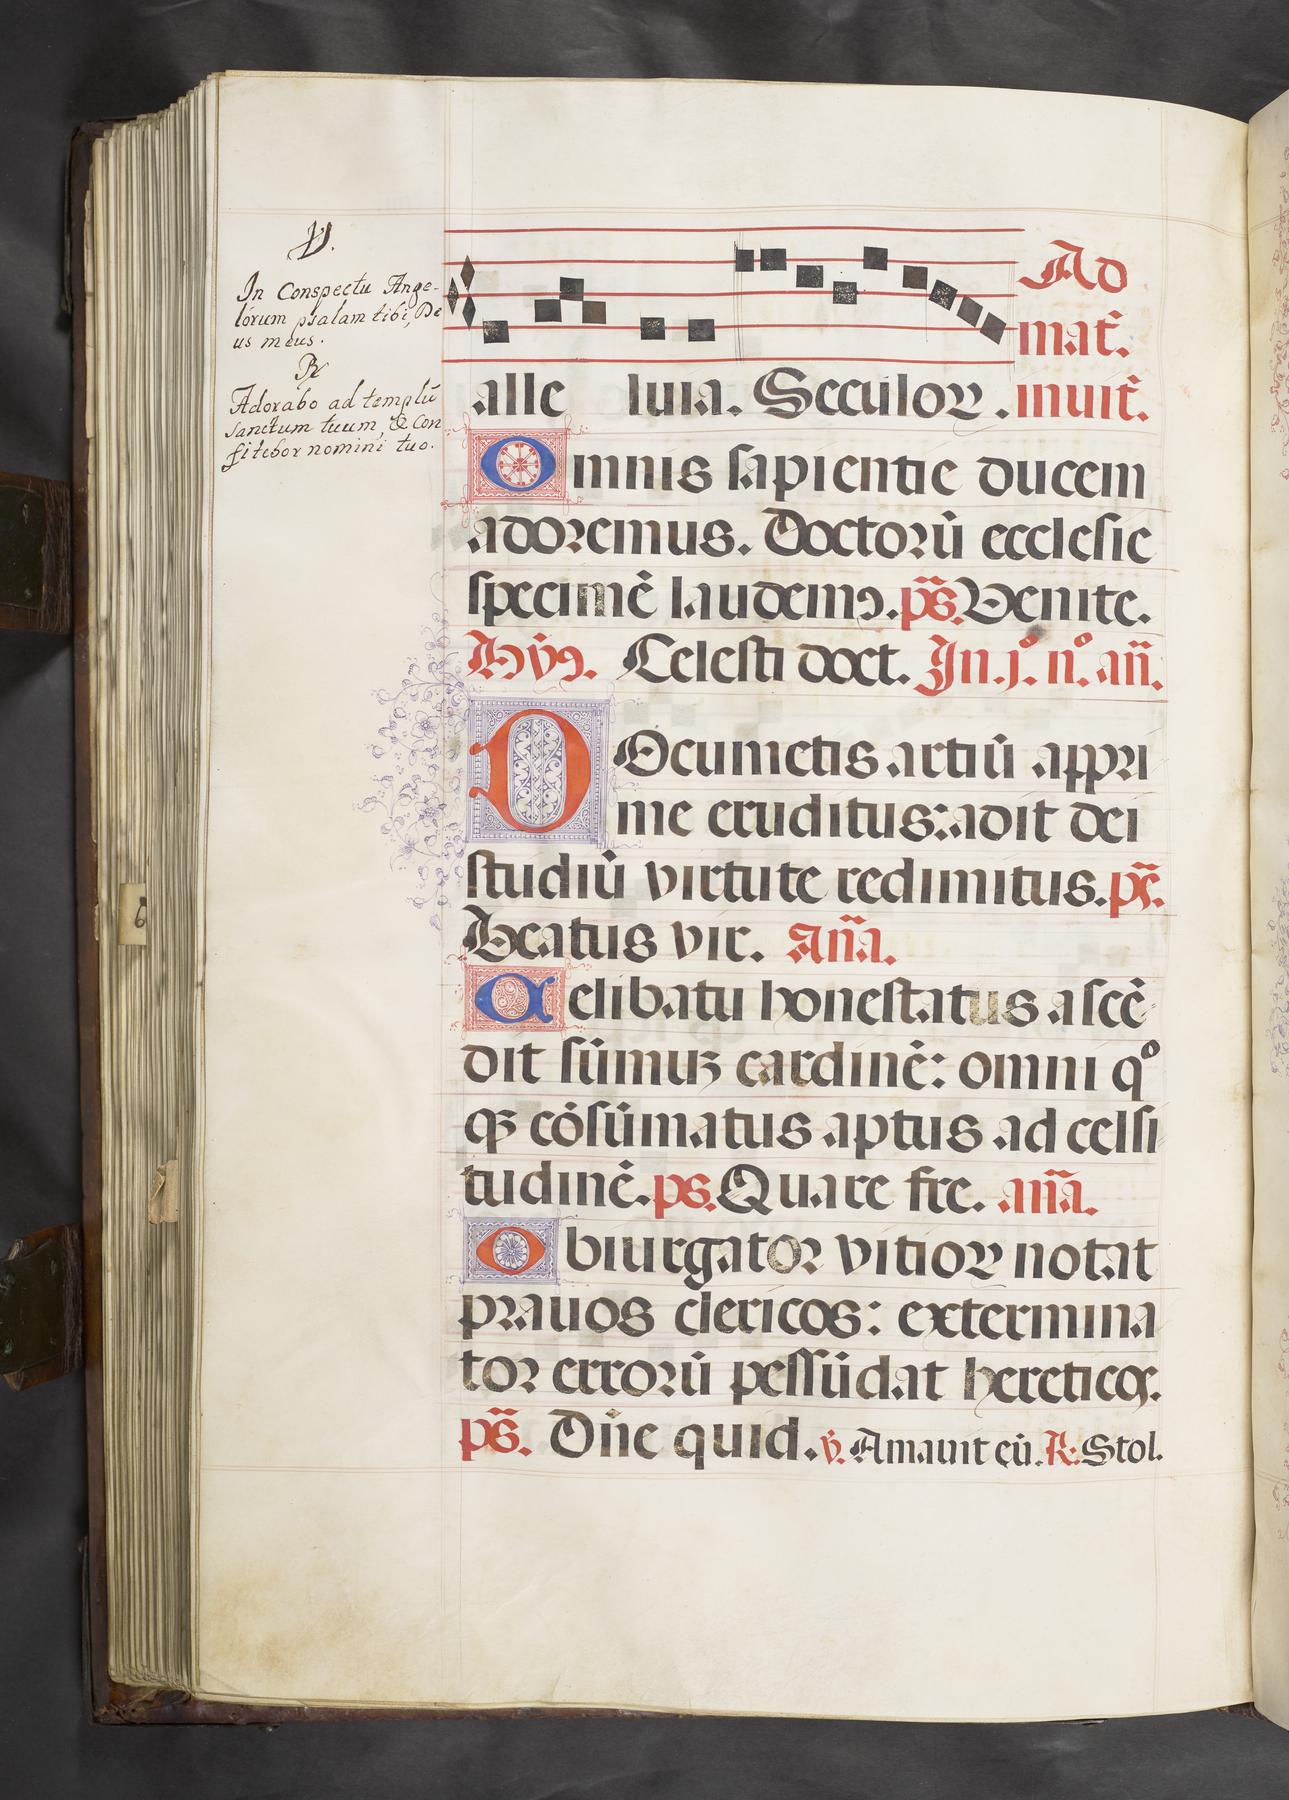 ℣.
In Conspectu Ange-
lorum psalam tibi, De
us meus.
℟
Adorabo ad templũ
sanctum tuum, & con
fitebor nomini tuo.
Ad
mat̃.
alle luia. Seculoꝝ. inuit̃.
Omnis sapientie ducem
adoremus. Doctorũ ecclesie
specimẽ laudemꝯ. ps̃. Venite.
Hỹꝯ. Celesti doct. In .j.º n.º añ.
DOcumctis artiũ appri
me eruditus: adit dei
studiũ virtute redimitus. ps̃.
Beatus vir. Aña.
Celibatu honestatus ascẽ-
dit sũmuꝫ cardinẽ: omni qº
qꝫ cõsũmatus aptus ad celsi
tudinẽ. ps. Quare fre. aña.
Obiurgator vitioꝝ notat
prauos clericos: extermina
tor errorũ pessũdat hereticos.
ps̃. Dñe quid. ℣. Amauit eũ. ℟. Stol.
6